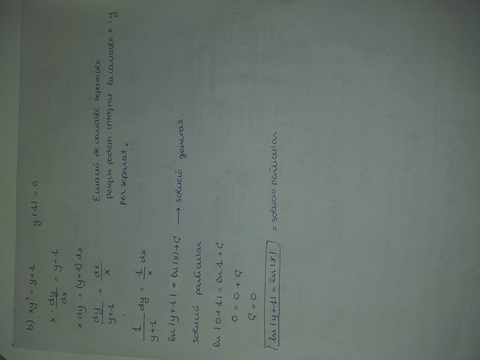 b) xy' = y+1 y(1) = 0
x · dy/dx = y+1
x dy = (y+1) dx
dy/y+1 = dx/x
Equació de variable separable
perquè podem integrar la variable x i y
per separat.
1/y+1 dy = 1/x dx
ln|y+1| = ln|x| + C → solució general
solució particular
ln|0+1| = ln 1 + C
0 = 0 + C
C = 0
ln|y+1| = ln|x| = solució particular